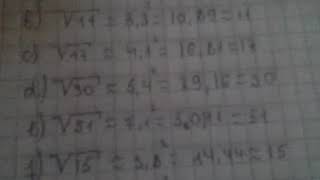 b) √11 ≈ 3,3² = 10,89 ≈ 11
c) √17 ≈ 4,1² = 16,81 ≈ 17
d) √30 ≈ 5,4² = 29,16 ≈ 30
√51 ≈ 7,1² = ≈ 51
f) √15 ≈ 3,8² = 14,44 ≈ 15